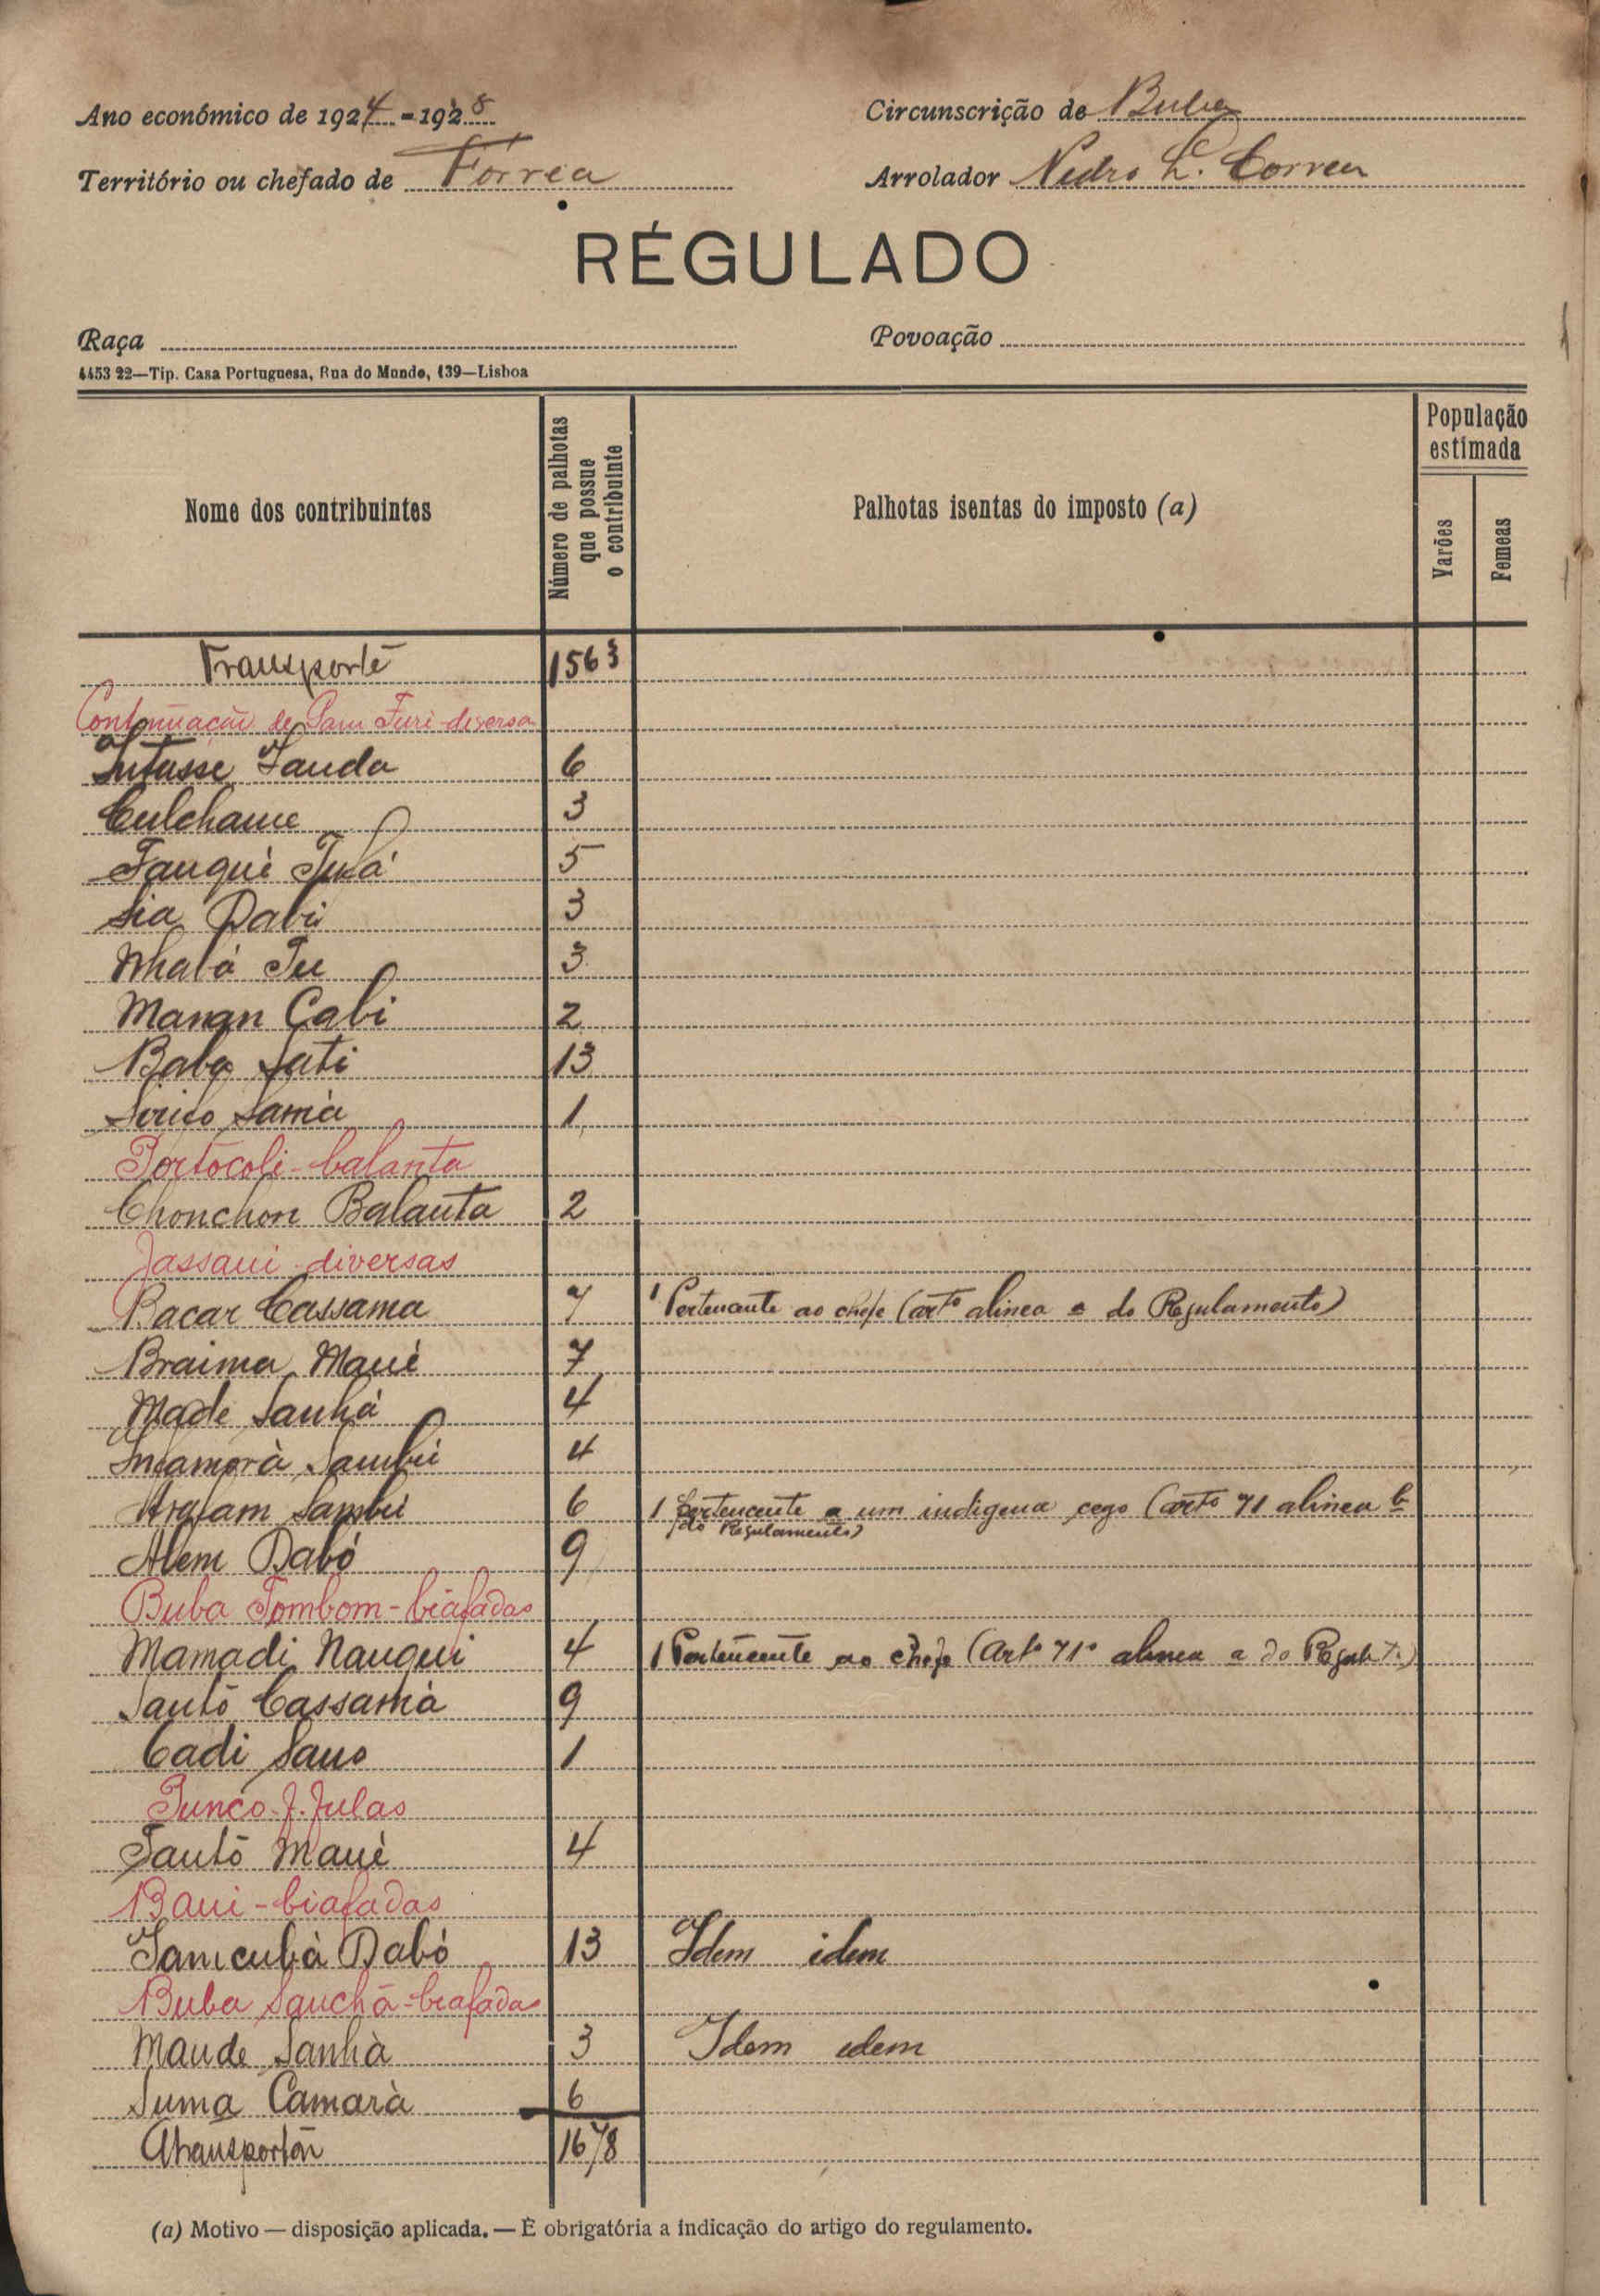 Ano económico de 1924-1928
Circunscrição de Buba
Território ou chefado de Fórrea
Arrolador Pedro L. Correia
RÉGULADO
Raça
Povoação
4453 22—Tip. Casa Portuguesa, Rua do Mundo, 139—Lisboa
Nome dos contribuintes
Número de palhotas que possue o contribuinte
Palhotas isentas do imposto (a)
População estimada
Varões
Femeas
Transporte 1563
Continuação de Sam Juri diversa
Sanda 6
Culchame 3
Fanqué 5
Sia Dabú 3
Nhalá 3
Manan Cabi 2
Baba Sati 13
Samá 1
Portocoli-balanta
Chonchon Balanta 2
Jassaui diversas
Bacar Cassama 7 1 Pertencente ao chefe (artº alinea a do Regulamento)
Braima Mané 7
Made Sanhá 4
Incamorà Sambú 4
Arafam Sambú 6 1 Pertencente a um indigena cego (artº 71 alinea b
do Regulamento)
Alem Dabó 9
Buba Tombom-biafadas
Mamadi Nanqui 4 1 Pertencente ao chefe (Artº 71º alinea a do Regulto.)
Santó Cassamà 9
Cadi Sano 1
Junco J. Julas
Santó Mané 4
Baui-biafadas
Famcubà Dabó 13 Idem idem
Buba Sanchá-biafadas
Maude Sanhà 3 Idem idem
Suma Camarà 6
A transportar 1678
(a) Motivo — disposição aplicada. — É obrigatória a indicação do artigo do regulamento.